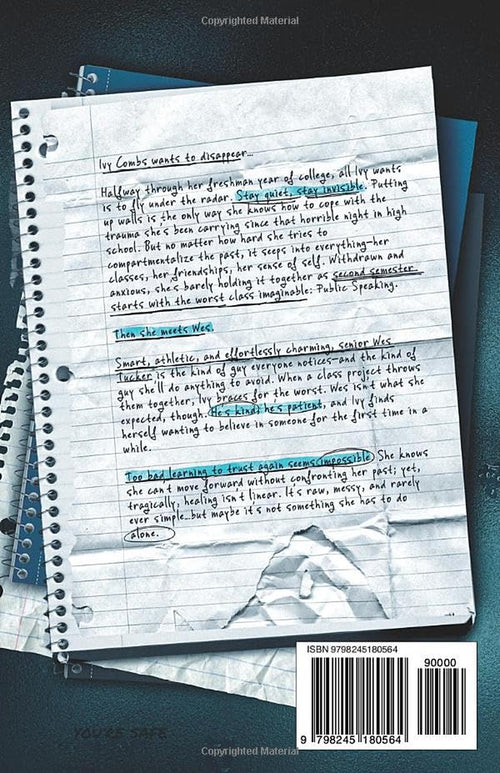 Copyrighted Material
Ivy Combs wants to disappear...
Halfway through her freshman year of college, all Ivy wants
is to fly under the radar. Stay quiet, stay invisible. Putting
up walls is the only way she knows how to cope with the
trauma she's been carrying since that horrible night in high
school. But no matter how hard she tries to
compartmentalize the past, it seeps into everything—her
classes, her friendships, her sense of self. Withdrawn and
anxious, she's barely holding it together as second semester
starts with the worst class imaginable: Public Speaking.
Then she meets Wes.
Smart, athletic, and effortlessly charming, senior Wes
Tucker is the kind of guy everyone notices—and the kind of
guy she'll do anything to avoid. When a class project throws
them together, Ivy braces for the worst. Wes isn't what she
expected, though. He's kind; he's patient, and Ivy finds
herself wanting to believe in someone for the first time in a
while.
Too bad learning to trust again seems impossible. She knows
she can't move forward without confronting her past; yet,
tragically, healing isn't linear. It's raw, messy, and rarely
ever simple...but maybe it's not something she has to do
alone.
ISBN 9798245180564
90000
9 798245 180564
YOU'RE SAFE
Copyrighted Material